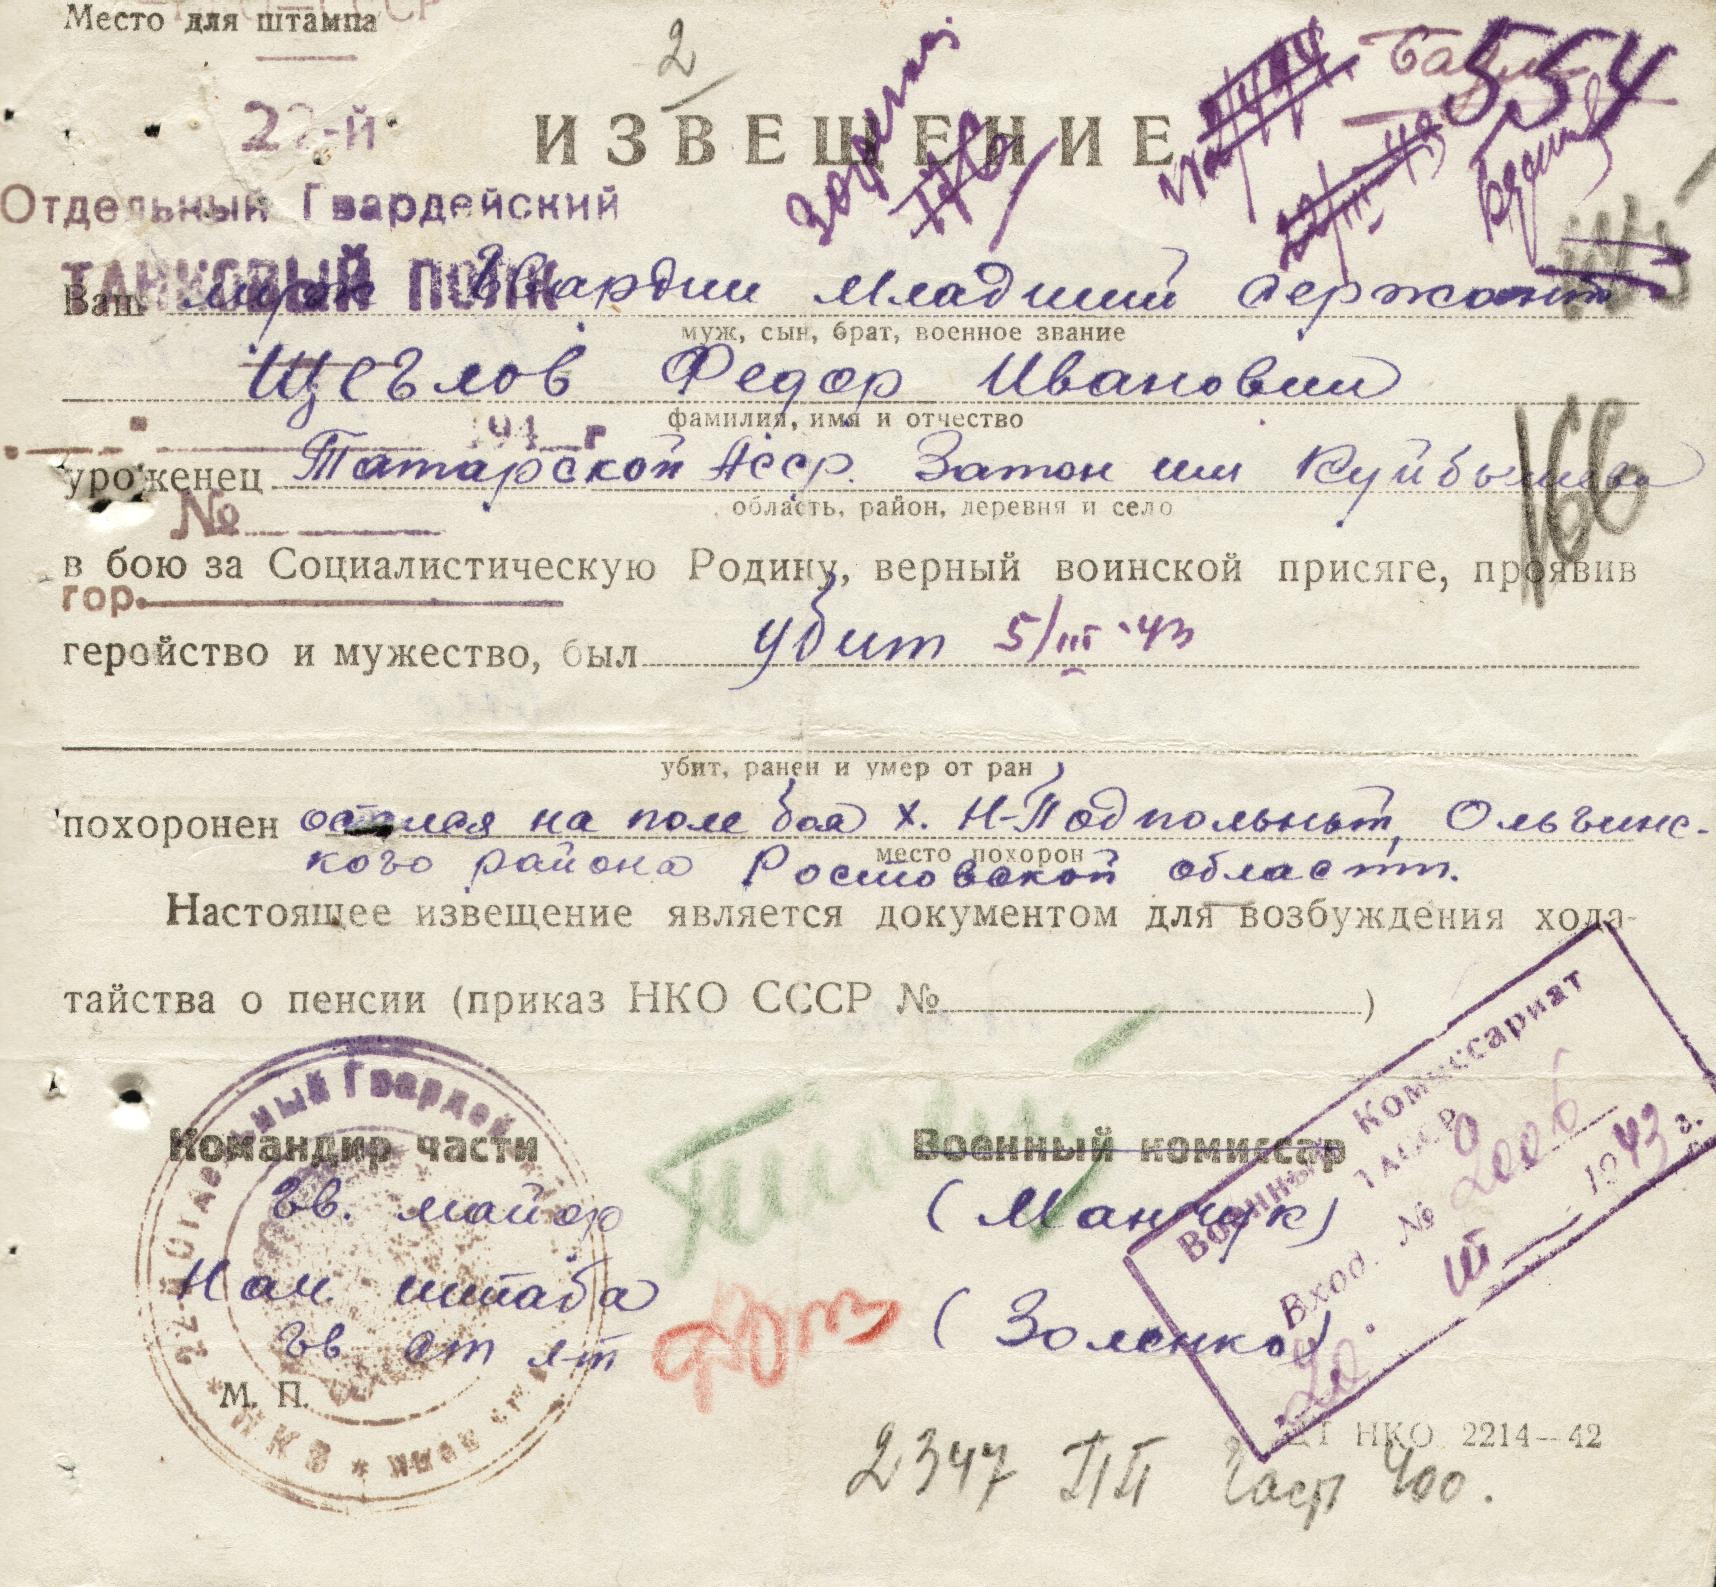 Место для штампа
2
554
22-й
ИЗВЕЩЕНИЕ
Отдельный Гвардейский
ТАНКОВЫЙ ПОЛК
Ваш муж Гвардии Младший сержант
муж, сын, брат, военное звание
Щеглов Федор Иванович
фамилия, имя и отчество
194 г
уроженец Татарской Асср. Затон им Куйбышева
область, район, деревня и село
№
166
в бою за Социалистическую Родину, верный воинской присяге, проявив
гор.
геройство и мужество, был убит 5/III-43
убит, ранен и умер от ран
похоронен остался на поле боя х. Н-Подпольный, Ольгинс-
место похорон
кого района Ростовской области.
Настоящее извещение является документом для возбуждения хода-
тайства о пенсии (приказ НКО СССР № )
Командир части Военный комиссар
Гв. майор (Манчук)
Нач. штаба
гв ст л-т (Золенко)
М. П.
Военный Комиссариат
ТАССР
Вход. № 2006
20. III 1943 г.
22-й Отдельный Гвардей
* НКО *
ЦТ НКО 2214—42
2347 ПП Часть 400.